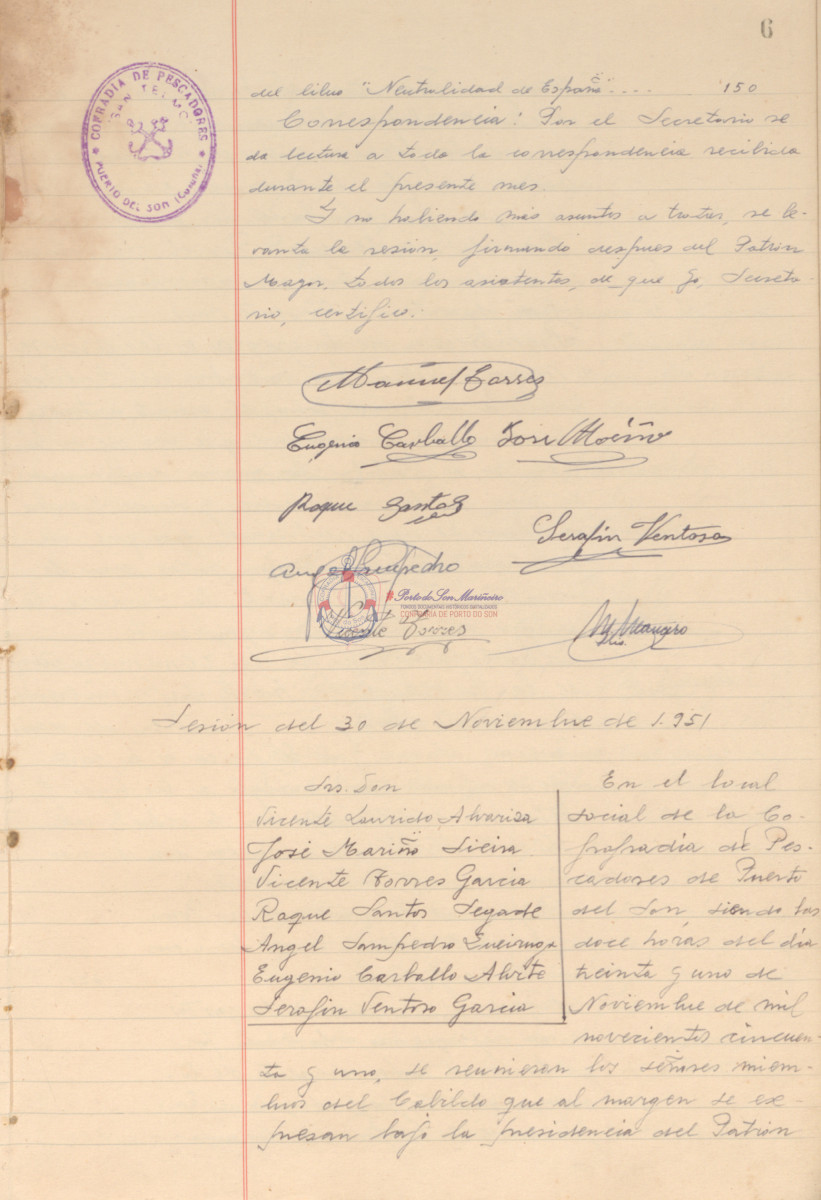 6
COFRADIA DE PESCADORES
SAN TELMO
PUERTO DEL SON (Coruña)
del libro "Neutralidad de España".... 150
Correspondencia: Por el Secretario se
da lectura a toda la correspondencia recibida
durante el presente mes.
Y no habiendo más asuntos a tratar, se le-
vanta la sesión, firmando despues del Patrón
Mayor, todos los asistentes, de que yo, Secreta-
rio, certifico:
Manuel Torres
Eugenio Carballo José Mariño
Roque Santos
Serafin Ventoso
Angel Sampedro
Porto do Son Mariñeiro
FONDOS DOCUMENTAIS HISTÓRICOS DIXITALIZADOS
CONFRARÍA DE PORTO DO SON
Vicente Torres
Sesión del 30 de Noviembre de 1.951
Srs. Don
Vicente Lourido Alvariza
José Mariño Sieira
Vicente Torres Garcia
Roque Santos Segade
Angel Sampedro Queiruga
Eugenio Carballo Alvite
Serafin Ventoso Garcia
En el local
social de la Co-
frafradía de Pes-
cadores de Puerto
del Son, siendo las
doce horas del día
treinta y uno de
Noviembre de mil
novecientos cincuen-
ta y uno, se reunieron los señores miem-
bros del Cabildo que al margen se ex-
presan bajo la presidencia del Patrón